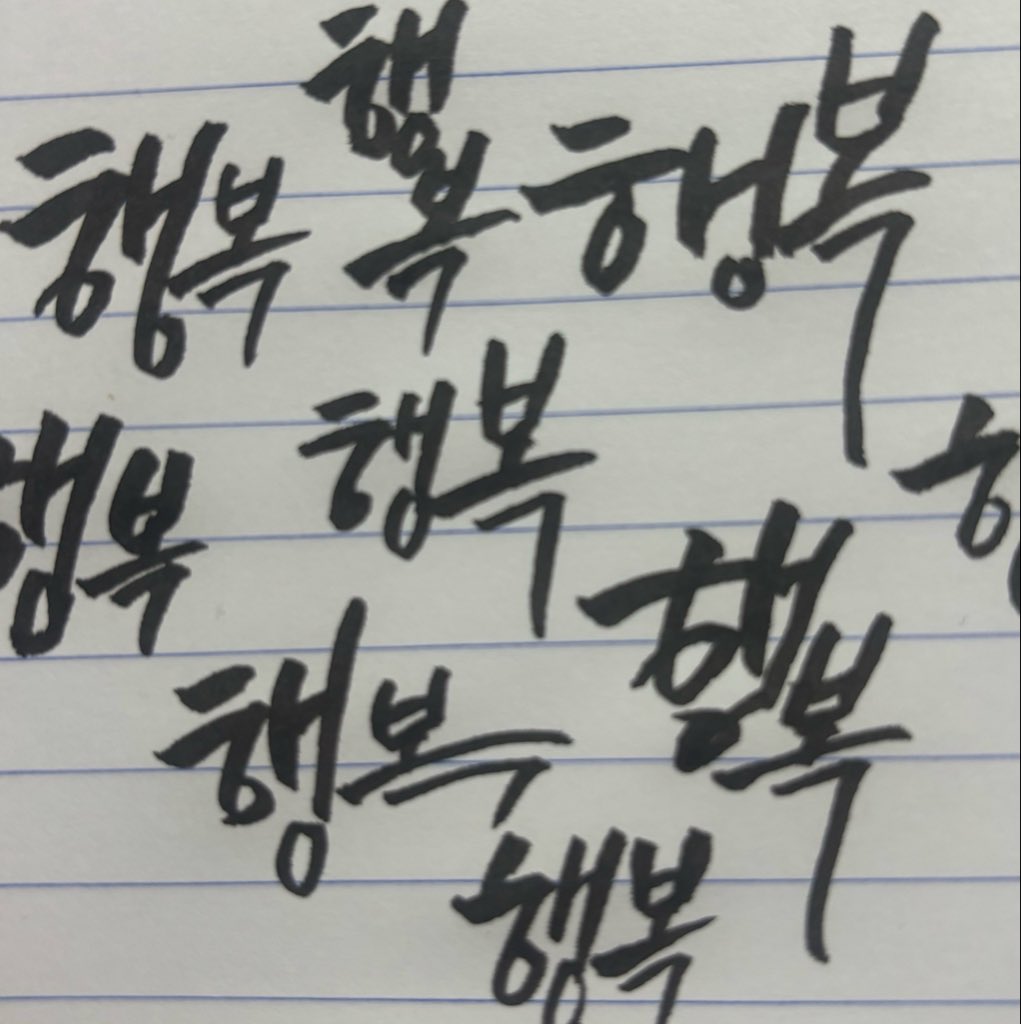 행복 행복 행복
행복 행복
행복 행복
행복